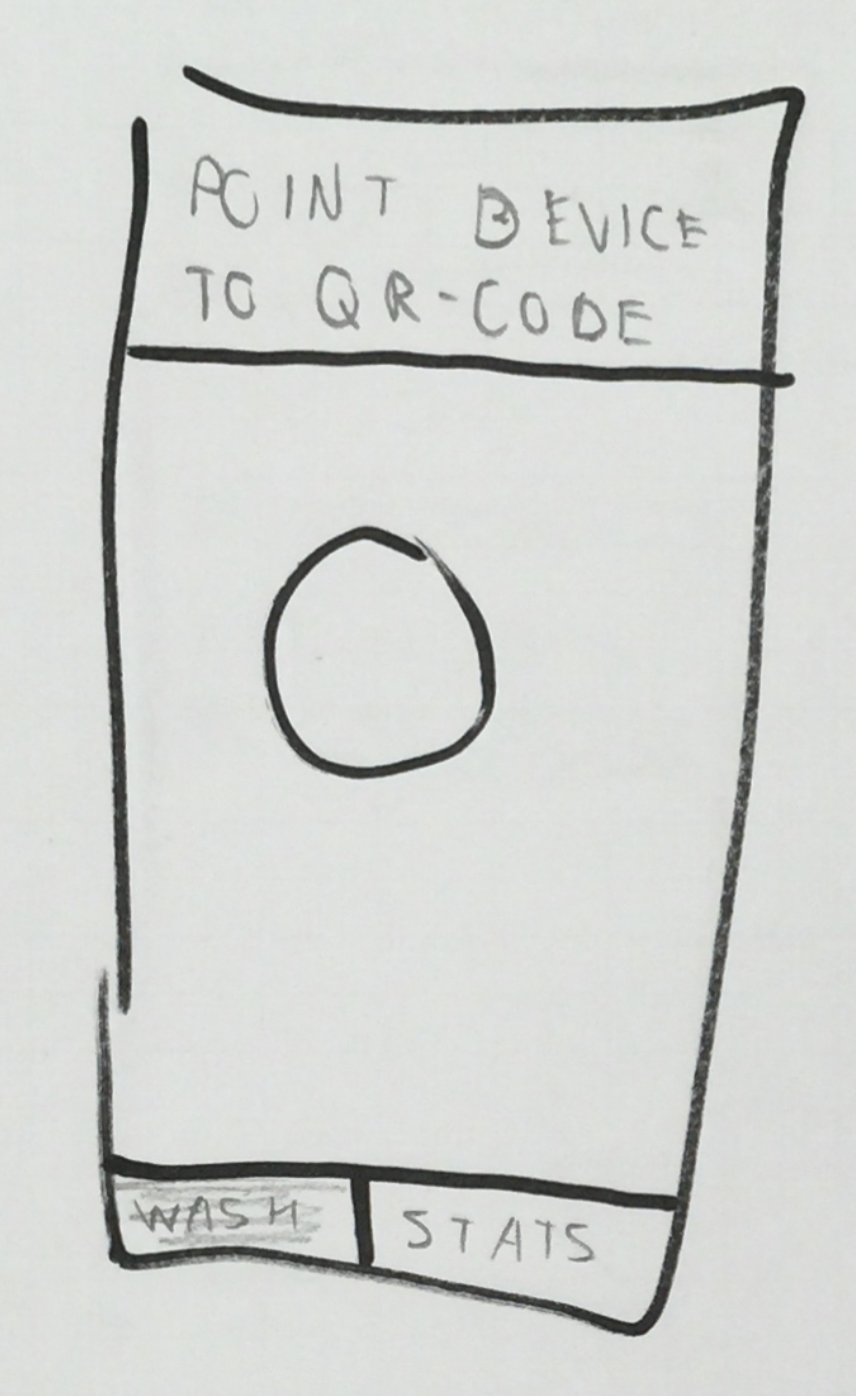 POINT DEVICE
TO QR-CODE
WASH
STATS